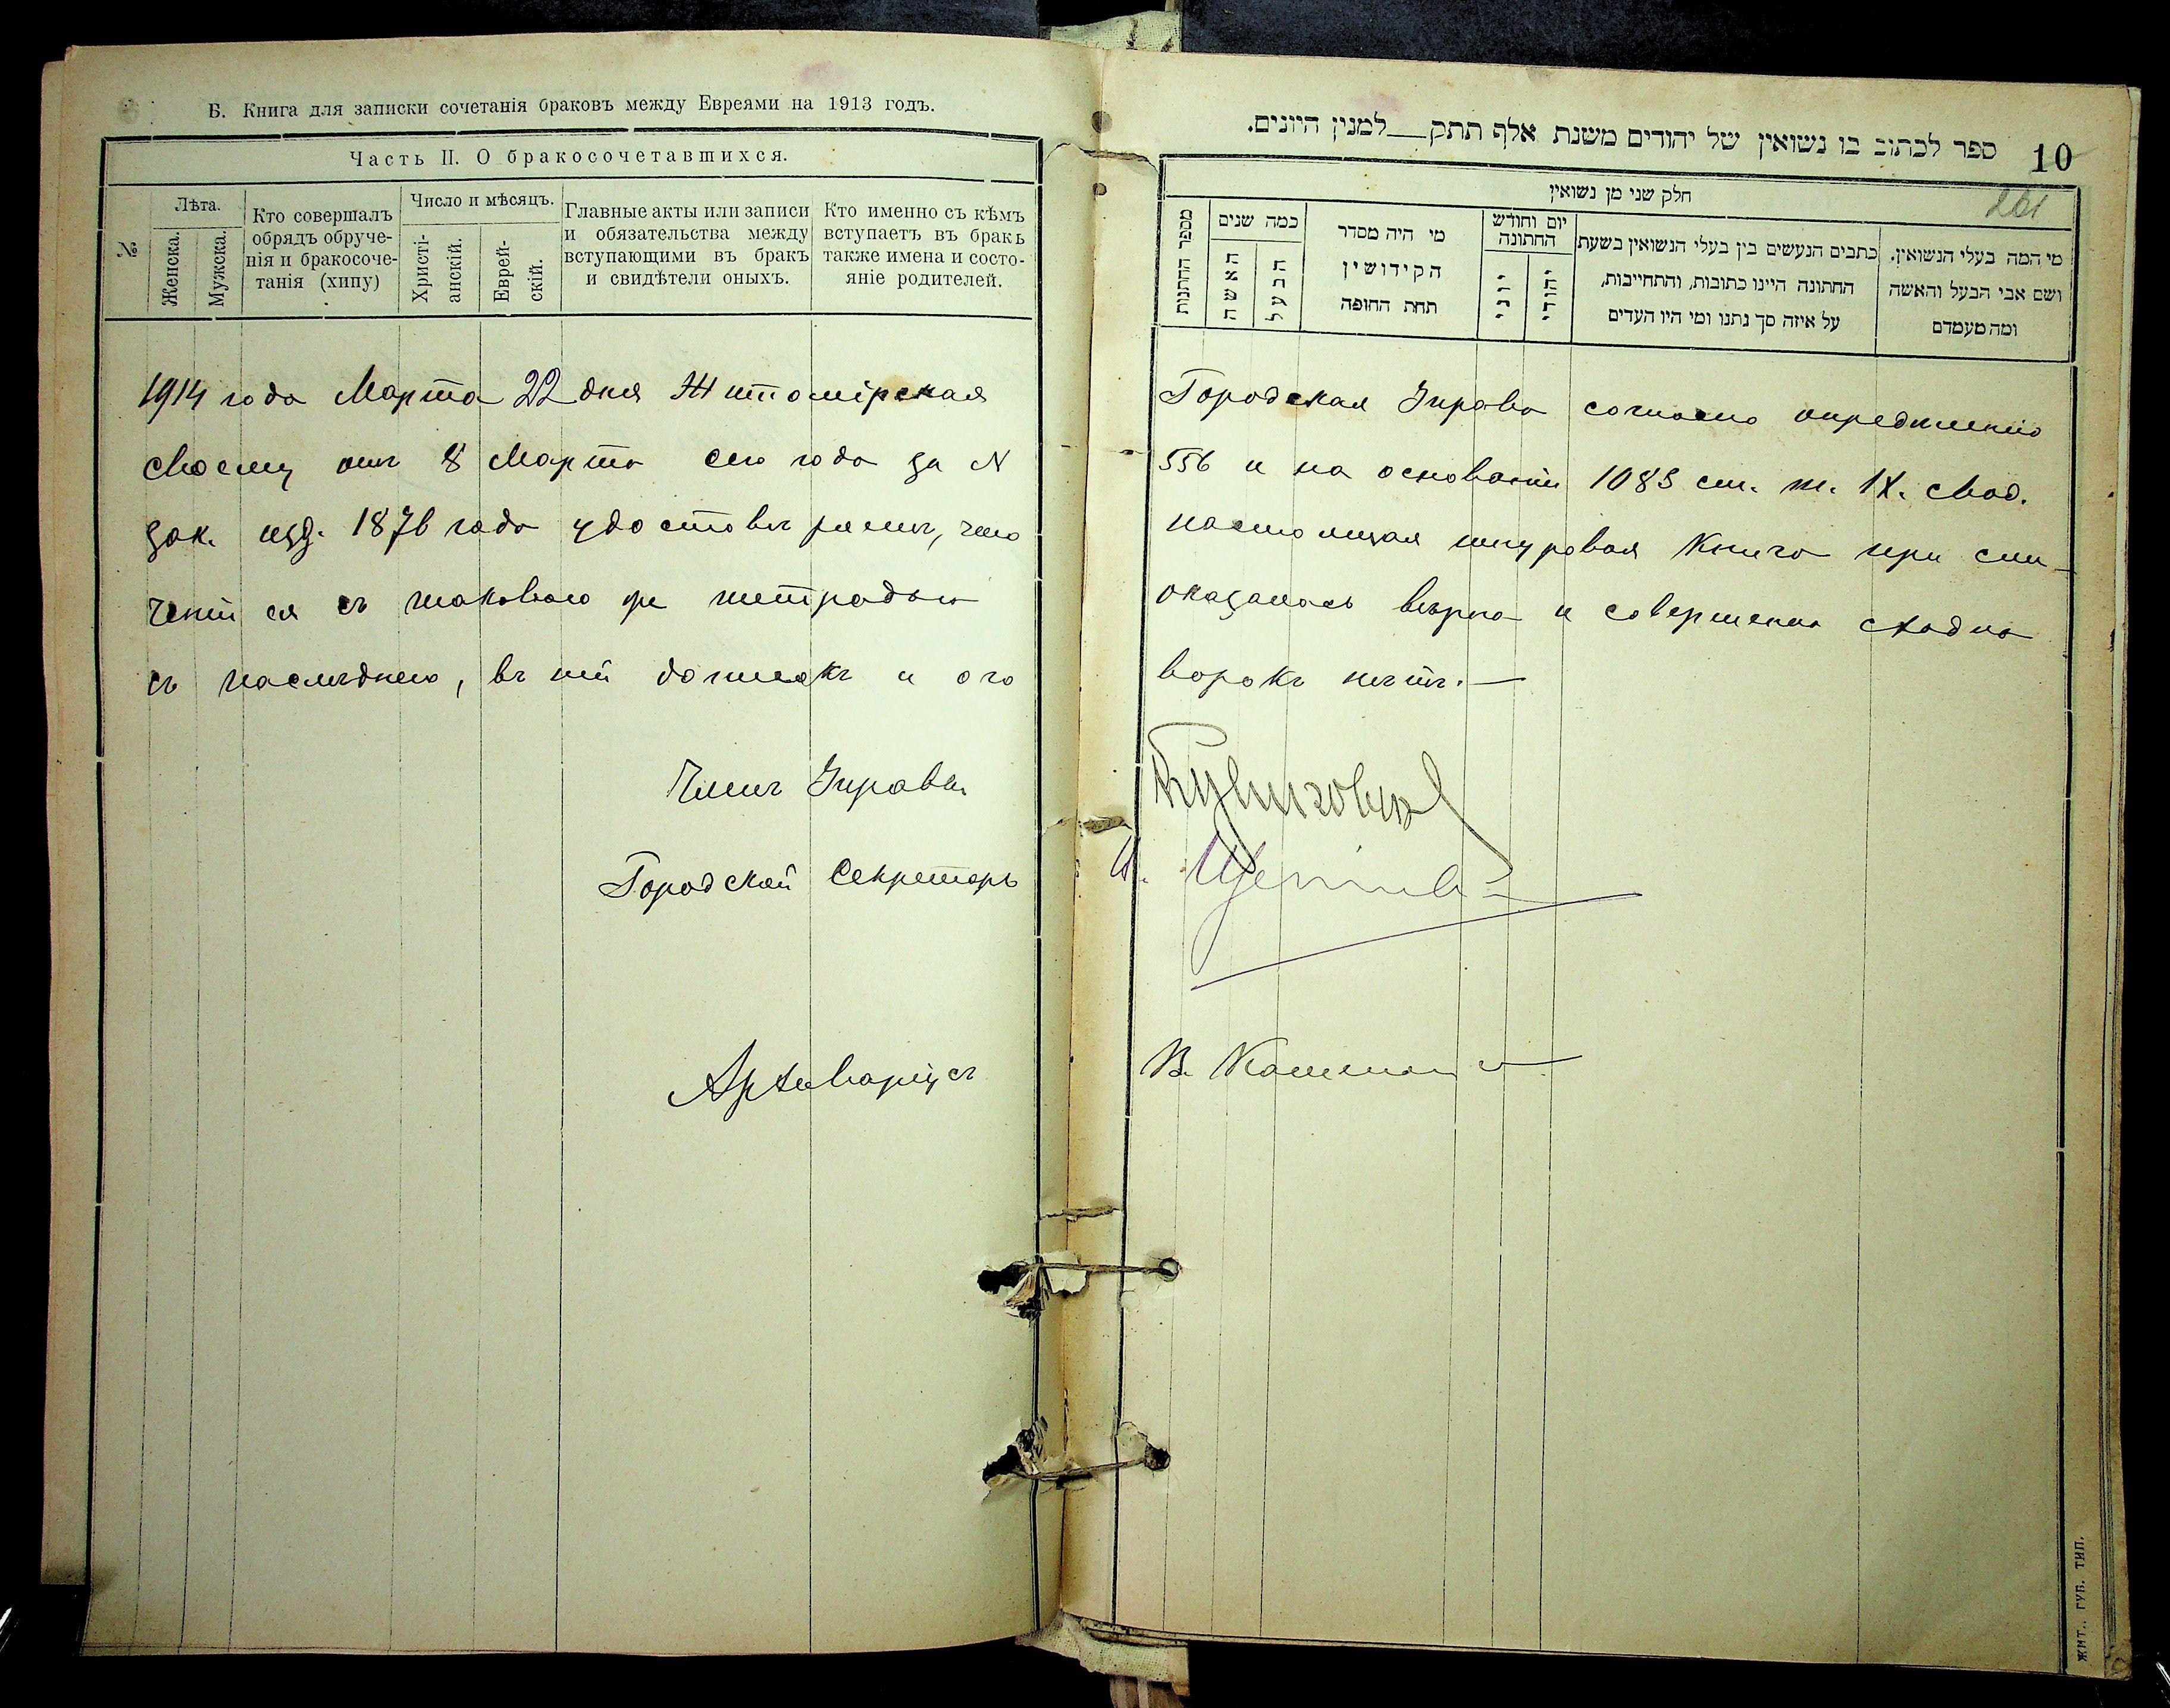 Б. Книга для записки сочетанія браковъ между Евреями на 1913 годъ.
Часть II. О бракосочетавшихся.
№
Лѣта.
Женска.
Мужска.
Кто совершалъ
обрядъ обруче-
нія и бракосоче-
танія (хипу)
Число и мѣсяцъ.
Христі-
анскій.
Еврей-
скій.
Главные акты или записи
и обязательства между
вступающими въ бракъ
и свидѣтели оныхъ.
Кто именно съ кѣмъ
вступаетъ въ бракъ
также имена и состо-
яніе родителей.
1914 года Марта 22 дня Житомірская
своему отъ 8 Марта сего года за N
зак. изд. 1876 года удостовѣряетъ, что
ченіи ея съ таковою же тетрадью
съ послѣднею, въ ней помарокъ и ого
Членъ Управы
Городской Секретарь
Архиваріусъ
ספר לכתוב בו נשואין של יהודים משנת אלף תתק__למנין היונים.
10
261
חלק שני מן נשואין
מספר החתונות
כמה שנים
האשה
הבעל
מי היה מסדר
הקידושין
תחת החופה
יום וחודש
החתונה
יוני
יהודי
כתבים הנעשים בין בעלי הנשואין בשעת
החתונה היינו כתובות, והתחייבות,
על איזה סך נתנו ומי היו העדים
מי המה בעלי הנשואין.
ושם אבי הבעל והאשה
ומה מעמדם
Городская Управа согласно опредѣленію
556 и на основаніи 1083 ст. т. IX. свод.
настоящая шнуровая книга при сли-
оказалась вѣрна и совершенно сходна
ворокъ нѣтъ.—
В.
ЖИТ. ГУБ. ТИП.